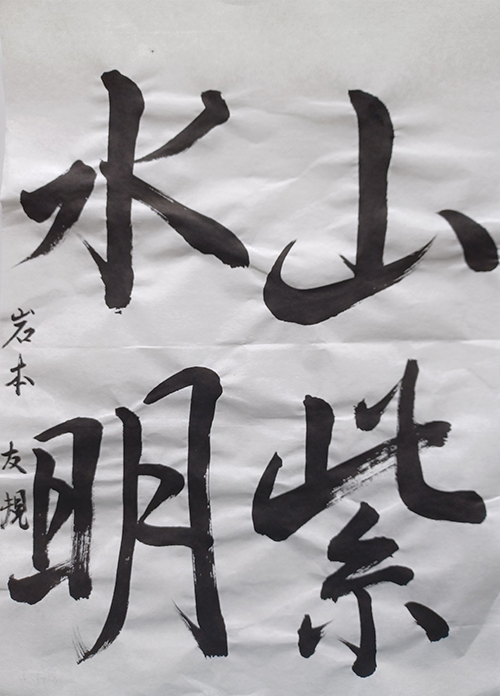 山紫
水明
岩本友規